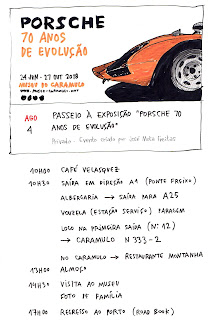 PORSCHE
70 ANOS
DE EVOLUÇÃO
24 JUN - 27 OUT 2018
MUSEU DO CARAMULO
AGO
4
PASSEIO À EXPOSIÇÃO "PORSCHE 70
ANOS DE EVOLUÇÃO"
Privado · Evento criado por José Mota Freitas
10H00 CAFÉ VELASQUEZ
10H30 SAÍDA EM DIREÇÃO A1 (PONTE FREIXO)
ALBERGARIA → SAÍDA PARA A25
VOUZELA (ESTAÇÃO SERVIÇO) PARAGEM
LOGO NA PRIMEIRA SAÍDA (Nº 12)
→ CARAMULO N 333-2
NO CARAMULO → RESTAURANTE MONTANHA
13H00 ALMOÇO
14H30 VISITA AO MUSEU
FOTO DE FAMÍLIA
17H00 REGRESSO AO PORTO (ROAD BOOK)